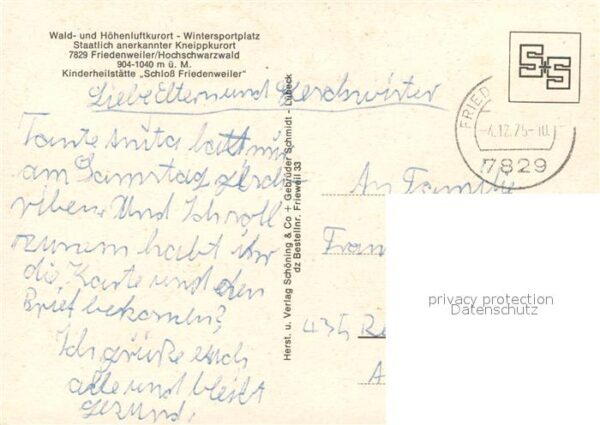 Wald- und Höhenluftkurort - Wintersportplatz
Staatlich anerkannter Kneippkurort
7829 Friedenweiler/Hochschwarzwald
904-1040 m ü. M.
Kinderheilstätte „Schloß Friedenweiler"
Liebe Eltern und Geschwister
Tante Anita hatt mir
am Samstag geschr
riben. Und Ich woll
habt ihr
die Karte und den
Brief bekomen?
Ich grüße euch
alle und bleibt
Gesund.
Herst. u. Verlag Schöning & Co + Gebrüder Schmidt - Lübeck
dz Bestellnr. Frieweil 33
S+S
FRIED
-4.12.75-10
7829
An Familie
Fran
435 Re
A
privacy protection
Datenschutz